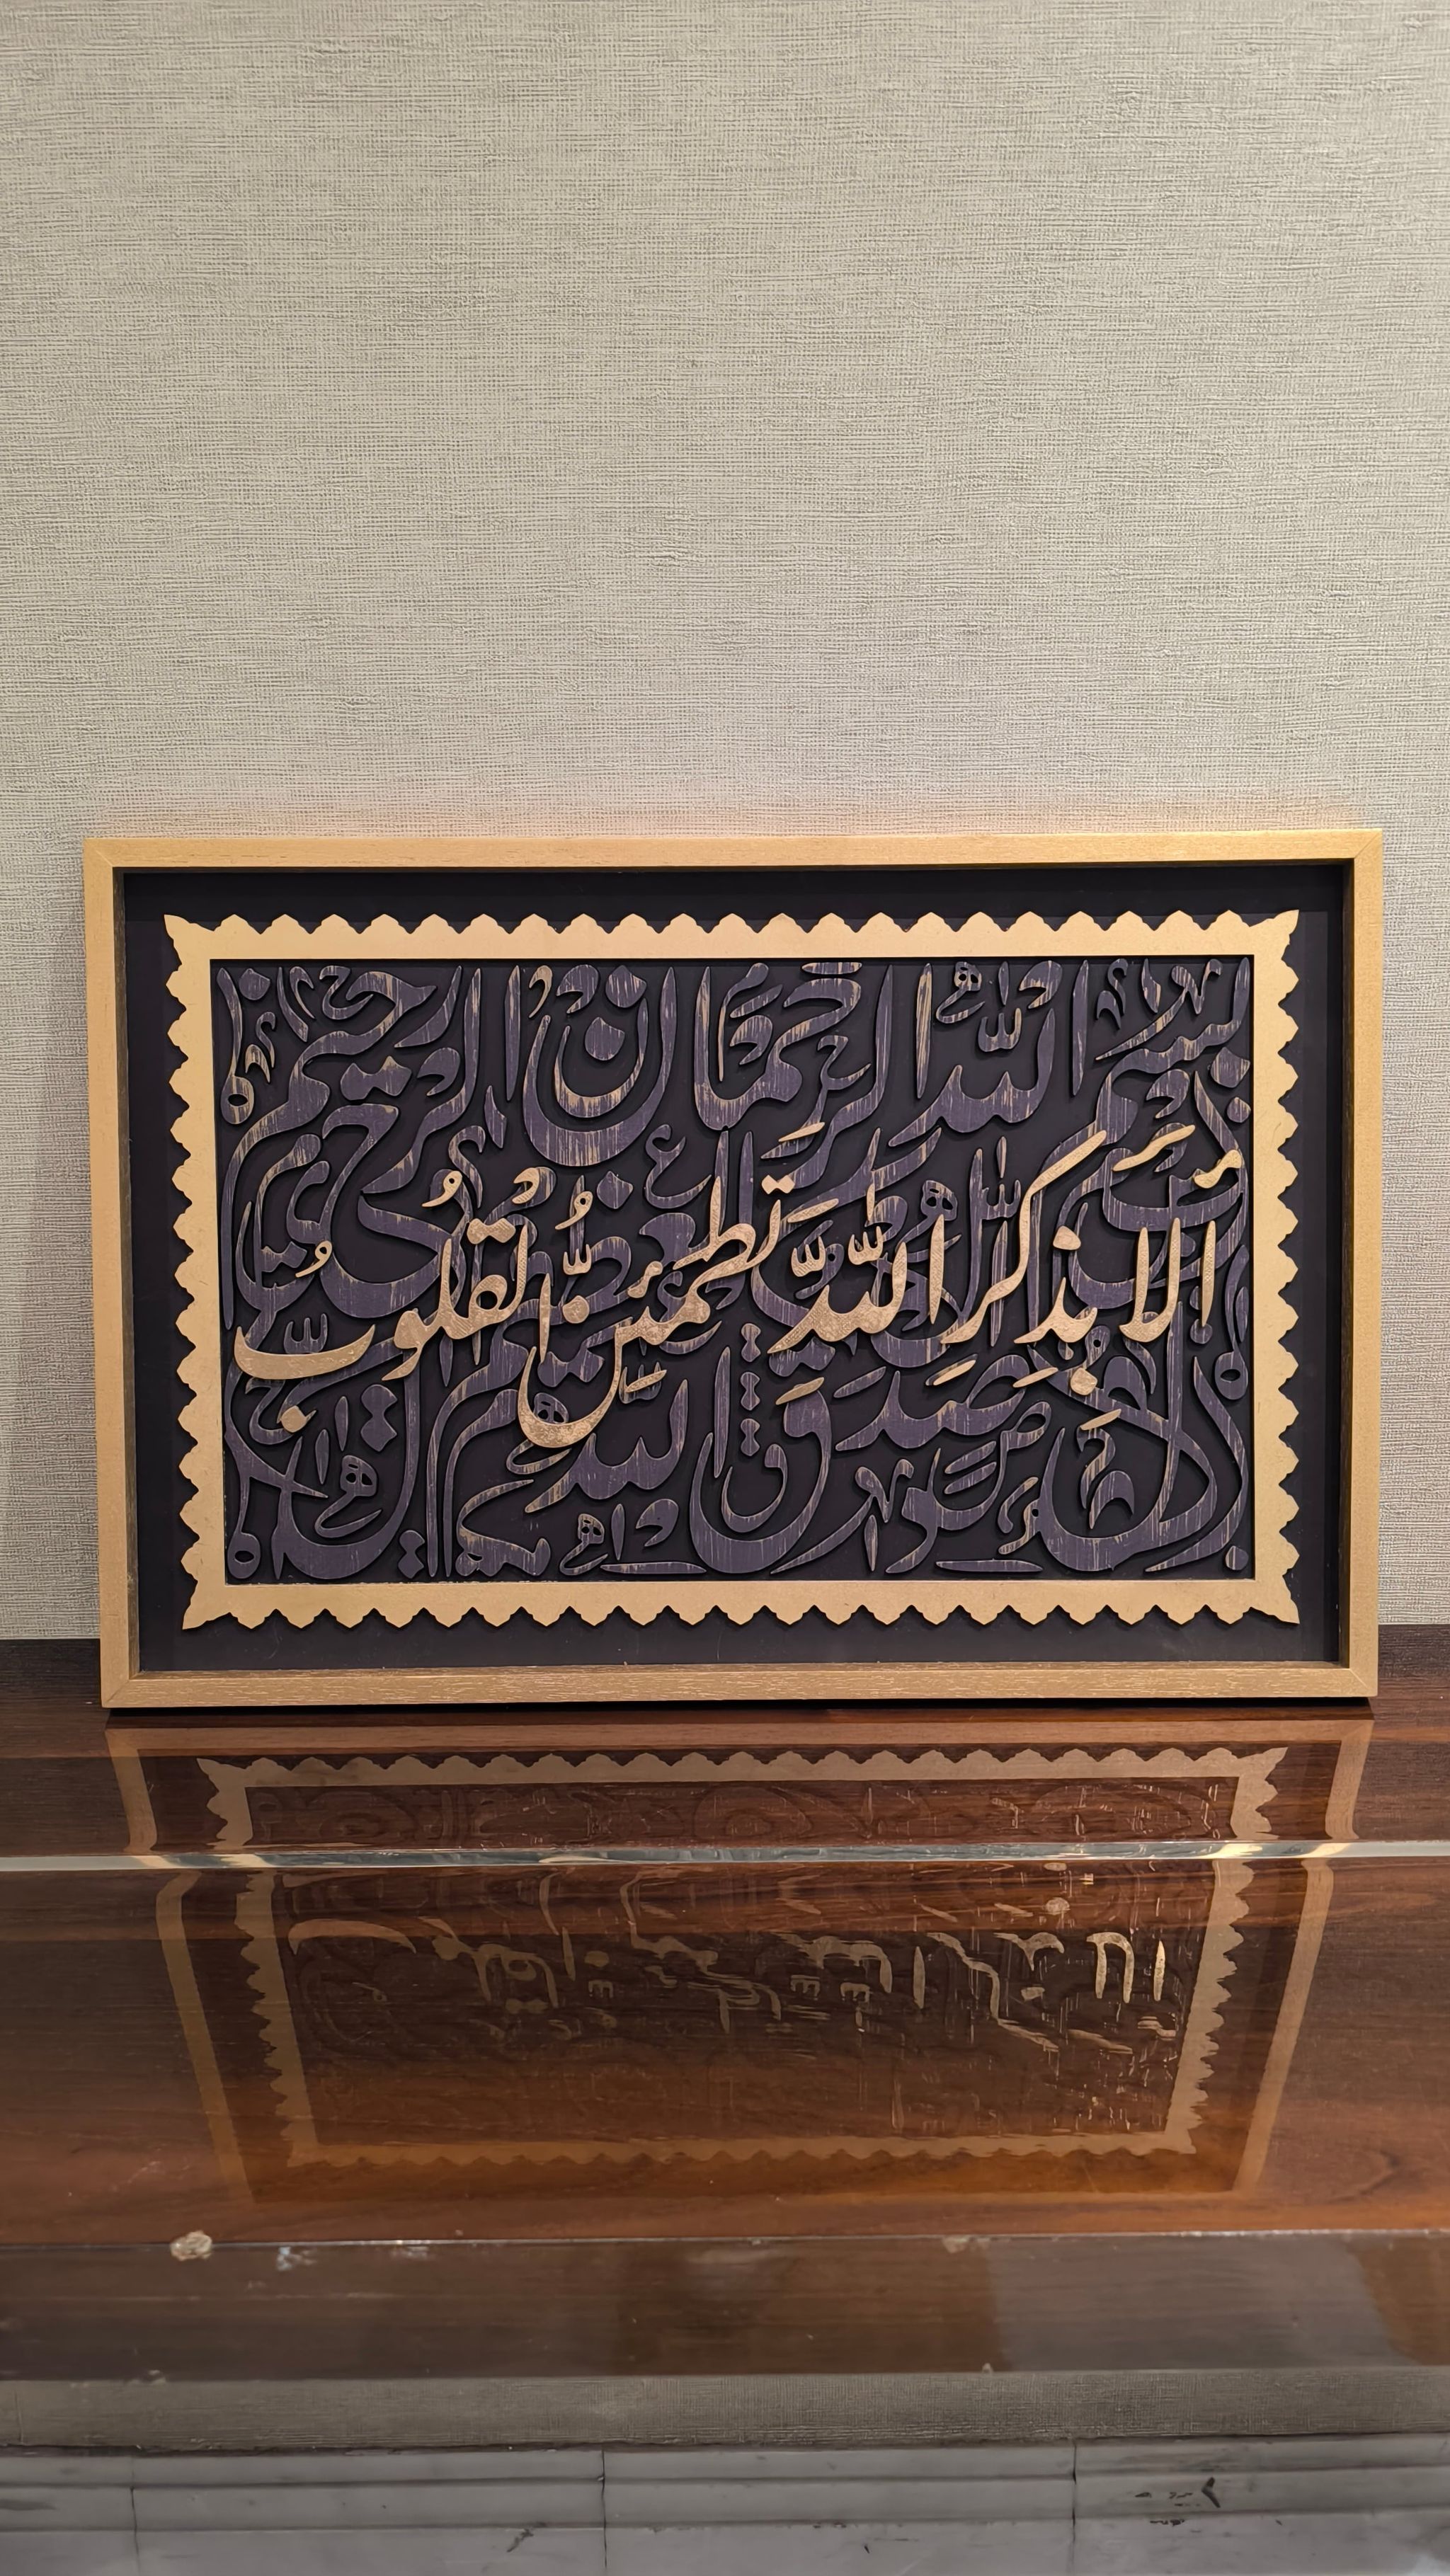 بسم الله الرحمان الرحيم
ألا بذكر الله تطمئن القلوب
صدق الله